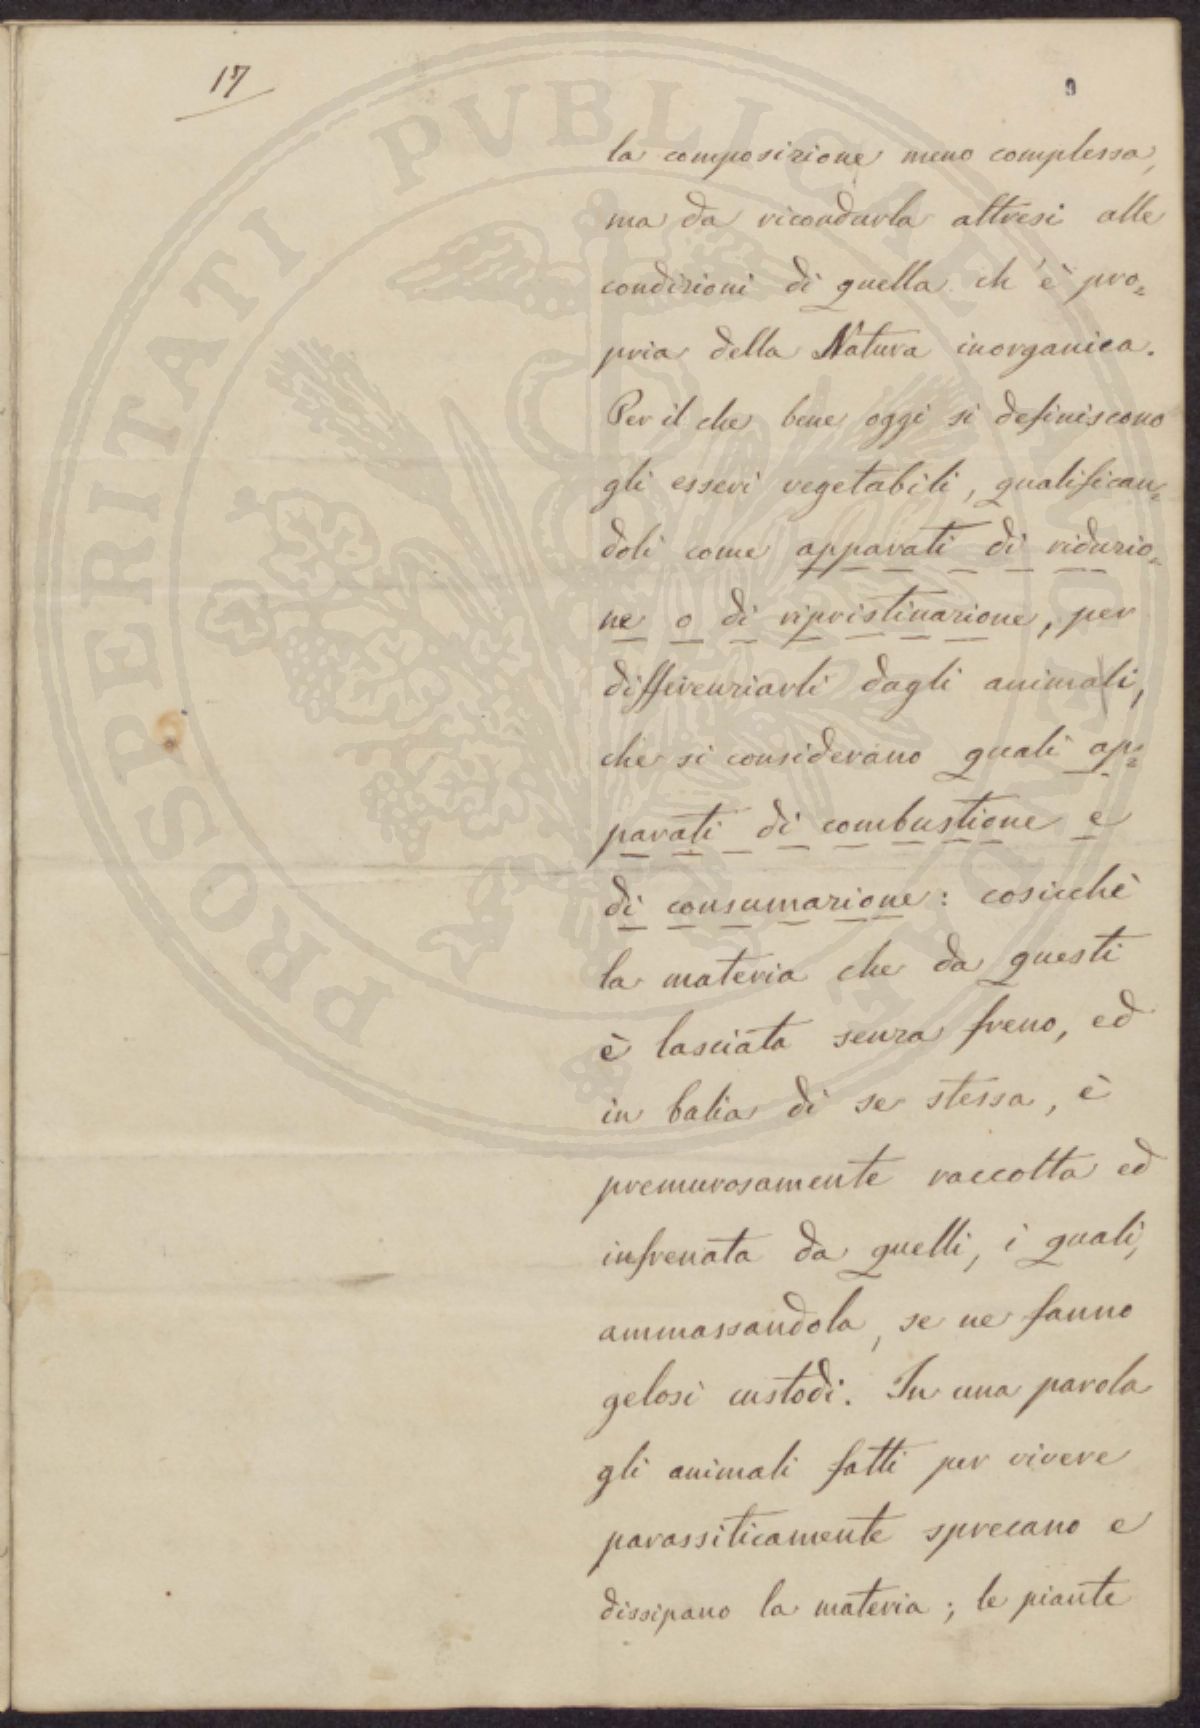 17
9
la composizione meno complessa,
ma da ricondurla altresi alle
condizioni di quella ch'è pro=
pria della Natura inorganica.
Per il che bene oggi si definiscono
gli esseri vegetabili, qualifican=
doli come apparati di riduzio=
ne o di ripristinazione, per
differenziarli dagli animali,
che si considerano quali ap=
parati di combustione e
di consumazione: cosicchè
la materia che da questi
è lasciata senza freno, ed
in balia di se stessa, è
premurosamente raccolta ed
infrenata da quelli, i quali,
ammassandola, se ne fanno
gelosi custodi. In una parola
gli animali fatti per vivere
parassiticamente sprecano e
dissipano la materia; le piante
PROSPERITATI PVBLICAE AVGENDAE